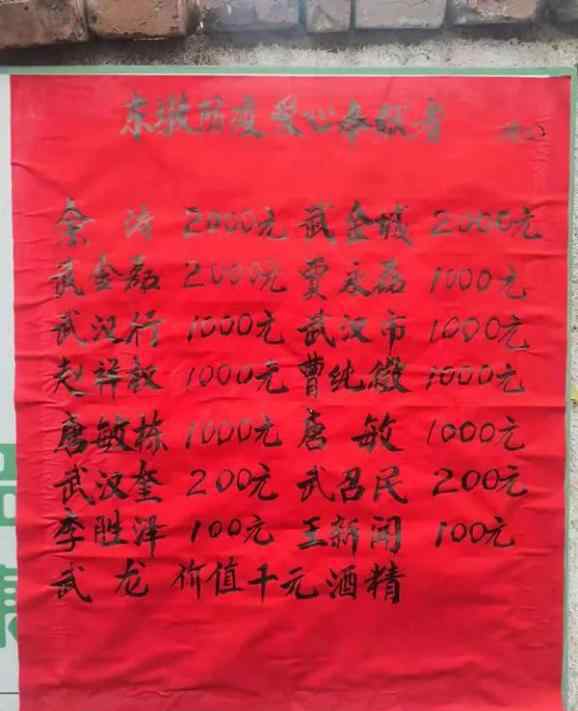 东墩防疫爱心奉献者
秦涛 2000元 武金城 2000元
武金磊 2000元 贾永磊 1000元
武汉行 1000元 武汉市 1000元
赵祥敏 1000元 曹纯徽 1000元
唐敏栋 1000元 唐敏 1000元
武汉奎 200元 武召民 200元
李胜泽 100元 王新闻 100元
武龙 价值千元酒精